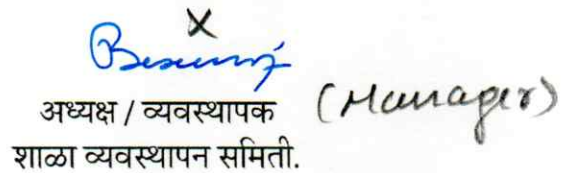 X
अध्यक्ष / व्यवस्थापक (Manager)
शाळा व्यवस्थापन समिती.